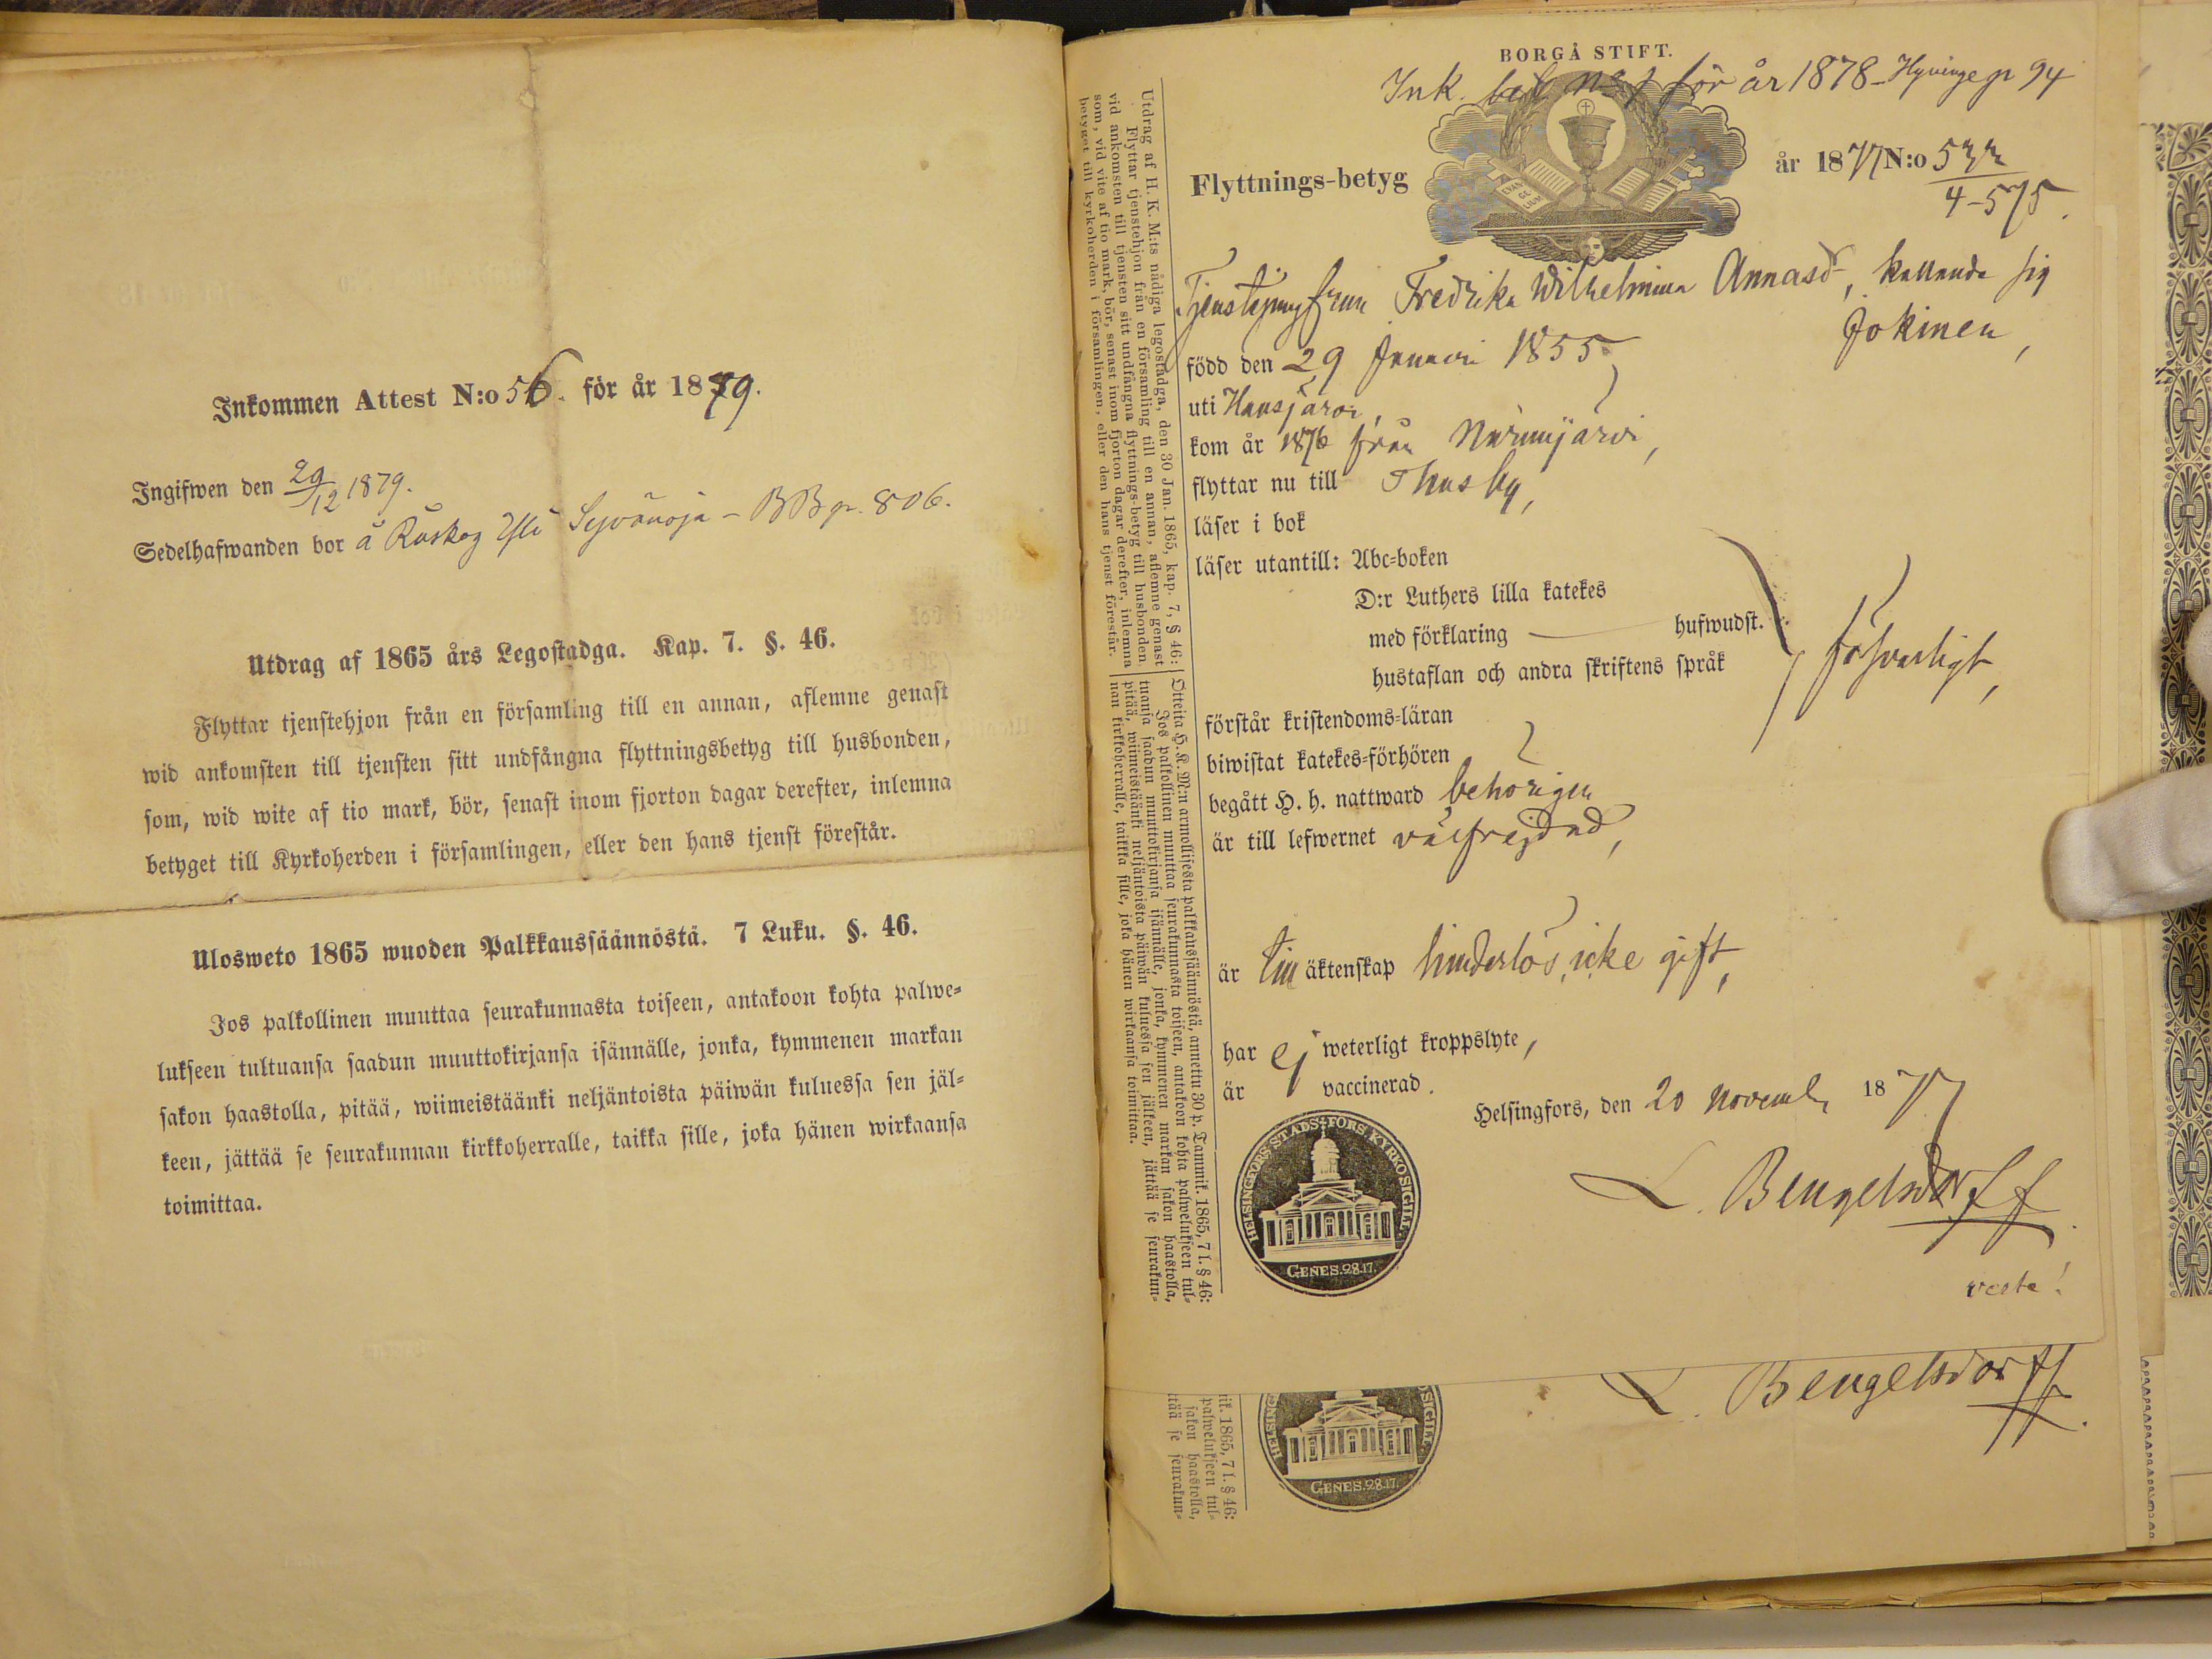 Inkommen Attest N:o 56. för år 1879.
Ingifwen den 29/12 1879.
Sedelhafwanden bor å Råskog Ylli Syvänoja – BB p. 806.
Utdrag af 1865 års Legostadga. Kap. 7. §. 46.
Flyttar tjenstehjon från en församling till en annan, aflemne genast
wid ankomsten till tjensten sitt undfångna flyttningsbetyg till husbonden,
som, wid wite af tio mark, bör, senast inom fjorton dagar derefter, inlemna
betyget till Kyrkoherden i församlingen, eller den hans tjenst förestår.
Ulosweto 1865 wuoden Palkkaussäännöstä. 7 Luku. §. 46.
Jos palkollinen muuttaa seurakunnasta toiseen, antakoon kohta palwe=
lukseen tultuansa saadun muuttokirjansa isännälle, jonka, kymmenen markan
sakon haastolla, pitää, wiimeistäänki neljäntoista päiwän kuluessa sen jäl=
keen, jättää se seurakunnan kirkkoherralle, taikka sille, joka hänen wirkaansa
toimittaa.
Utdrag af H. K. M:ts nådiga legostadga, den 30 Jan. 1865, kap. 7, § 46:
Flyttar tjenstehjon från en församling till en annan, aflemne genast
vid ankomsten till tjensten sitt undfångna flyttnings-betyg till husbonden,
som, vid vite af tio mark, bör, senast inom fjorton dagar derefter, inlemna
betyget till kyrkoherden i församlingen, eller den hans tjenst förestår.
Otteita H. K. M:n armollisesta palkkaussäännöstä, annettu 30 p. Tammik. 1865, 7 l. § 46:
Jos palkollinen muuttaa seurakunnasta toiseen, antakoon kohta palwelukseen tul=
tuansa saadun muuttokirjansa isännälle, jonka, kymmenen markan sakon haastolla,
pitää, wiimeistäänki neljäntoista päiwän kuluessa sen jälkeen, jättää se seurakun=
nan kirkkoherralle, taikka sille, joka hänen wirkaansa toimittaa.
BORGÅ STIFT.
Ink. bet. för år 1878 – Hyvinge p 94
EVAN GE LIUM
Flyttnings-betyg
år 1877 N:o 533
4–575.
Tjenstejungfrun Fredrika Wilhelmina Annasdr, kallande sig
Jokinen,
född den 29 Januari 1855
uti Hausjärvi,
kom år 1876 från Nurmijärvi,
flyttar nu till Thusby,
läser i bok
läser utantill: Abc=boken
D:r Luthers lilla katekes
med förklaring hufwudst.
hustaflan och andra skriftens språk
försvarligt,
förstår kristendoms=läran
biwistat katekes=förhören
begått H. h. nattward behörigen
är till lefwernet välfrejdad,
är till äktenskap hinderlös, icke gift,
har ej weterligt kroppslyte,
är vaccinerad.
Helsingfors, den 20 Novemb. 1877
HELSINGFORS STADS FÖRS. KYRKOSIGILL.
GENES. 28.17.
L. Bengelsdorff.
verte!
L. Bengelsdorff.
HELSING
OSIGILL.
GENES. 28.17.
ik. 1865, 7 l. § 46:
palwelukseen tul=
sakon haastolla,
tää se seurakun=